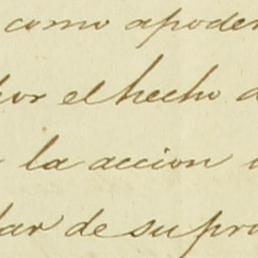 como apoder
por el hecho d
la accion
dar de su pro